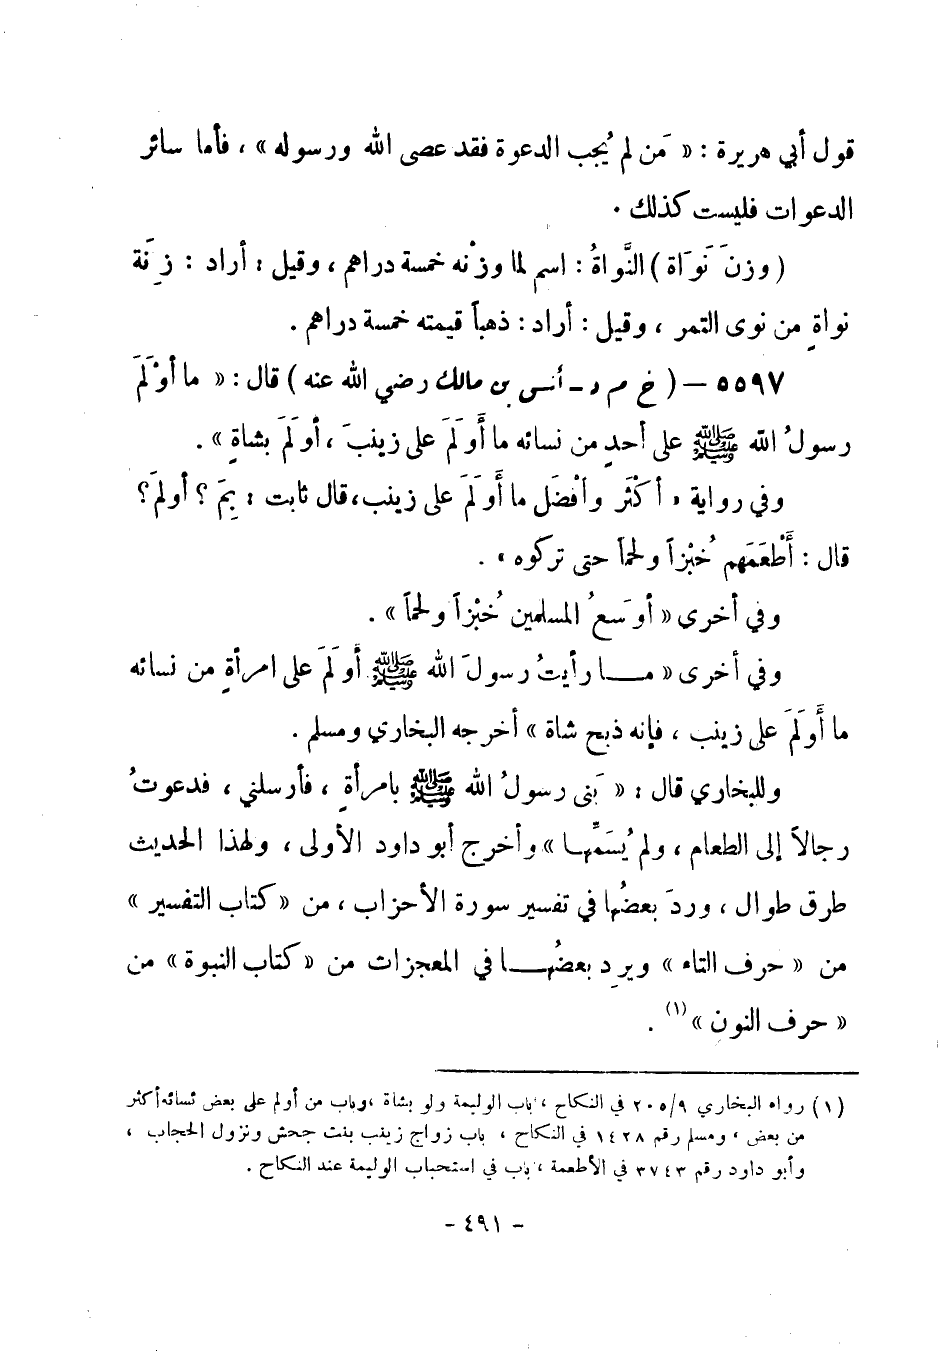 قول أبي هريرة : « مَن لم يُجب الدعوة فقد عصى الله ورسوله » ، فأما سائر
الدعوات فليست كذلك .
( وزنَ نَوَاة ) النَّواةُ : اسم لما وزْنه خمسة دراهم ، وقيل : أراد : زِنَة
نواةٍ من نوى التمر ، وقيل : أراد : ذهباً قيمته خمسة دراهم .
٥٥٩٧ – ( خ م د - أنس بن مالك رضي الله عنه ) قال : « ما أوْلَمَ
رسولُ الله ﷺ على أحدٍ من نسائه ما أَوْلَمَ على زينبَ ، أوْلَمَ بشاةٍ » .
وفي رواية « أكْثَر وأفْضَل ما أَوْلَمَ على زينب، قال ثابت : بِمَ ؟ أولمَ ؟
قال : أَطْعَمَهم خُبْزاً ولحماً حتى تركوه » .
وفي أخرى « أوسَعُ المسلمين خُبْزاً ولحماً » .
وفي أخرى « مـــا رأيتُ رسولَ الله ﷺ أَوْلَمَ على امرأةٍ من نسائه
ما أَوْلَمَ على زينب ، فإنه ذبح شاة » أخرجه البخاري ومسلم .
وللبخاري قال : « بَنى رسولُ الله ﷺ بامرأةٍ ، فأرسلني ، فدعوتُ
رجالاً إلى الطعام ، ولم يُسَمِّهـا » وأخرج أبو داود الأولى ، ولهذا الحديث
طرق طوال ، وردَ بعضُها في تفسير سورة الأحزاب ، من « كتاب التفسير »
من « حرف التاء » ويرِد بعضُهـــا في المعجزات من « كتاب النبوة » من
« حرف النون » (١) .
(١) رواه البخاري ٢٠٥/٩ في النكاح ، باب الوليمة ولو بشاة ، وباب من أولم على بعض نسائه أكثر
من بعض ، ومسلم رقم ١٤٢٨ في النكاح ، باب زواج زينب بنت جحش ونزول الحجاب ،
وأبو داود رقم ٣٧٤٣ في الأطعمة ، باب في استحباب الوليمة عند النكاح .
- ٤٩١ -